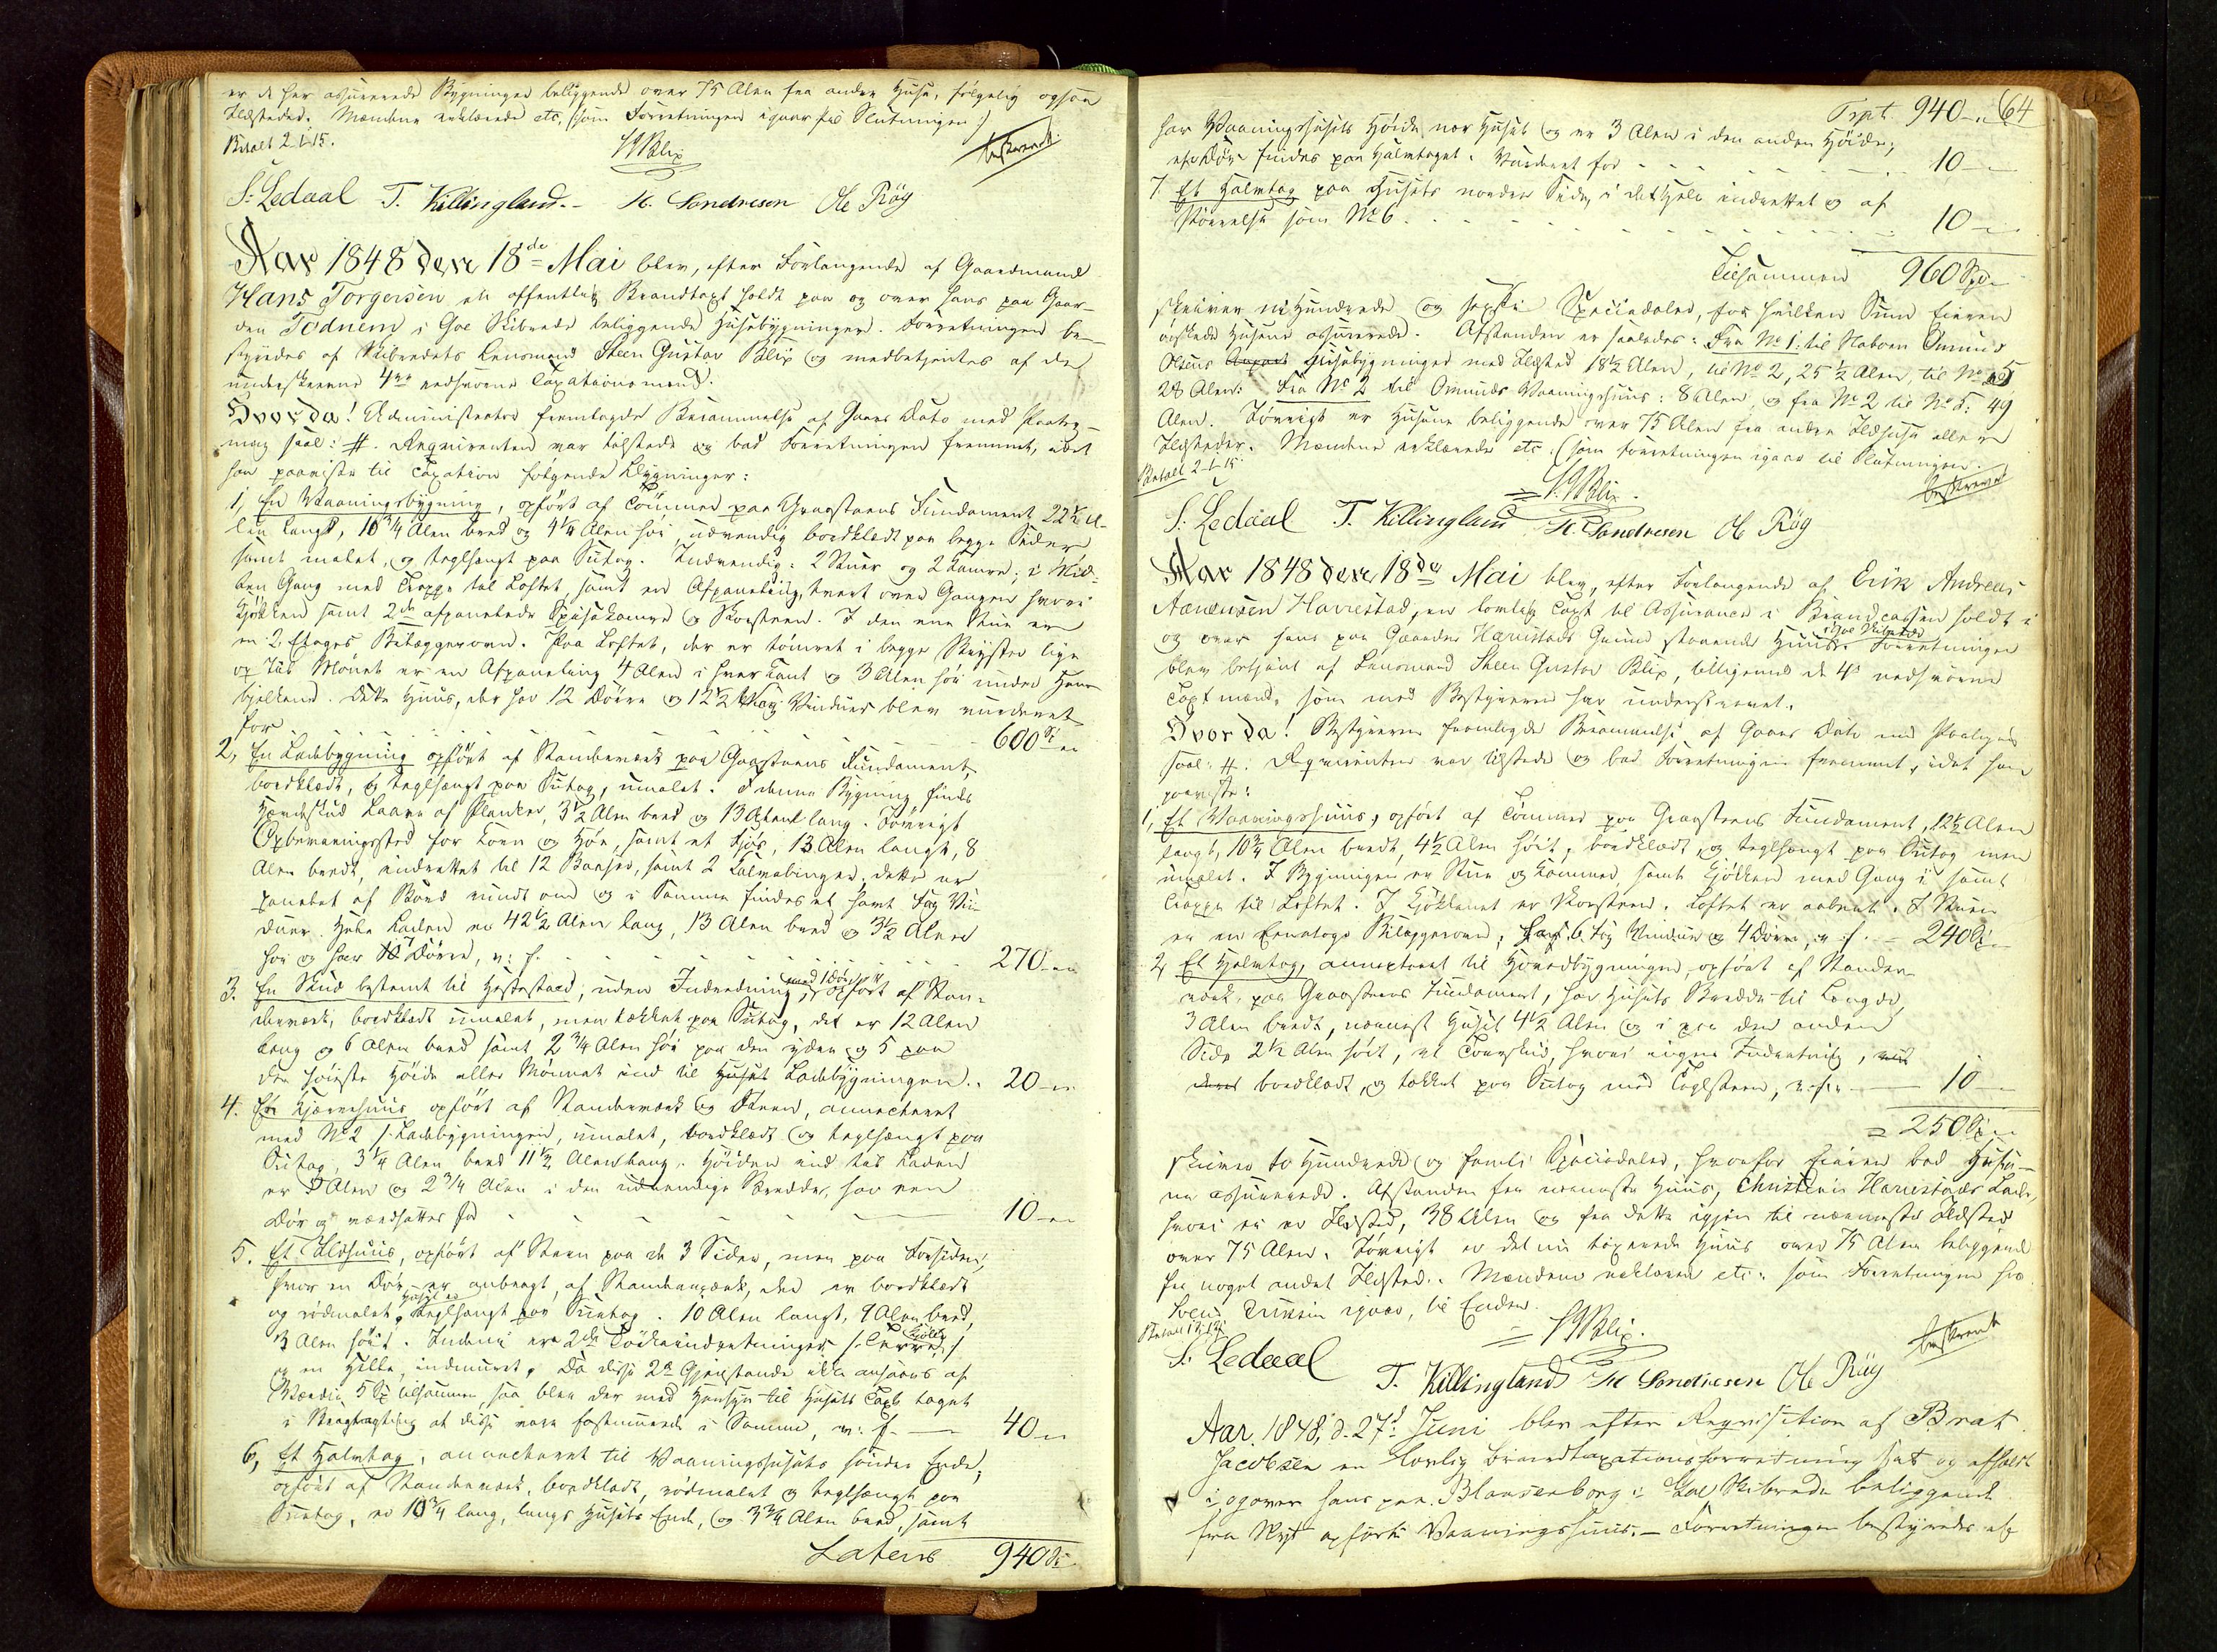 er de her assurerede Bygninger beliggende over 75 Alen fra andre Huse, følgelig ogsaa
Ildsteder. Mændene erklærede etc. (som Forretningen igaar til Slutningen)
Betalt 2-1-15.
SGBlix
beskrevet
S: Ledaal T. Killingland.- H. Sondresen Ole Røg
Aar 1848 den 18de Mai blev, efter Forlangende af Gaardmand
Hans Torgersen en offentlig Brandtaxt holdt paa og over hans paa Gaar-
den Todnem i Goe Skibrede beliggende Huusebygninger. Forretningen be-
styredes af Skibredets Lensmand Steen Gustav Blix og medbetjentes af de
underskrevne 4re edsvorne Taxationsmænd.
Hvorda! Administrator fremlagde Berammelse af Gaars Dato med Paateg-
ning saal: #. Requirenten var tilstede og bad Forretningen fremmet, idet
han paaviste til Taxation følgende Bygninger:
1, En Vaaningsbygning, opført af Tømmer paa Graasteens Fundament 22½ A-
len langt, 10 3/4 Alen bred og 4¼ Alen høi, udvendig bordklædt paa begge Sider
samt malet, og teglhængt paa Sutag. Indvendig: 2 Stuer og 2 Kamre; i Mid-
ten Gang med Trappe til Loftet, samt en Afpaneling, tvert over Gangen hvori
Kjøkken samt 2de afpanelede Spisekamre og Skorsteen. I den ene Stue er
en 2 Etages Bilæggerovn. Paa Loftet, der er tømret i begge Røyster lige
op til Mønet er en Afpaneling 4 Alen i hver Kant og 3 Alen høi under Hane-
bjelkene. Dette Huus, der har 12 Døre og 12½ Fag Vinduer blev vurderet
for - - - 600 Sp
2, En Ladebygning opført af Standerværk paa Graasteens Fundament,
bordklædt, og teglhængt paa Sutag, umalet. I denne Bygning findes
Laave af Planker, 3½ Alen bred og 13 Alen lang. Forøvrigt
Opbevaringssted for Korn og Høe, samt et Fjøs, 13 Alen langt, 8
Alen bredt, indrettet til 12 Baaser, samt 2 Kalvebinger, dette er
panelet af Bord rundt om og i Samme findes et halvt Fag Vin-
duer. Hele Laden er 42½ Alen lang, 13 Alen bred og 3½ Alen
høi og har Døre, v: f. - - - 270 -
3. En Skud bestemt til Hestestald, uden Indredning, med 1 Dør, opført af Stan-
derværk, bordklædt umalet, men tækket paa Sutag, det er 12 Alen
lang og 6 Alen bred samt 2 3/4 Alen høi paa den ydre og 5 paa
den høieste Høide eller Mønnet ind til Husets Ladebygningen. 20 -
4. Et Kjærnehuus opført af Standerværk og Steen, annecteret
med No 2 /: Ladebygningen, umalet, bordklædt og teglhængt paa
Sutag, 3¼ Alen bred 11½ Alen lang. Høiden ind til Laden
er 5 Alen og 2 3/4 Alen i den udvendige Bredde, har een
Dør og værdsattes for - - - 10 -
5. Et Ildhuus, opført af Steen paa de 3 Sider, men paa Forsiden,
hvor en Dør er anbragt, af Standerværk, der er bordklædt
og rødmalet, Huset er teglhængt paa Sutag. 10 Alen langt, 9 Alen bred,
3 Alen høit. Indeni ere 2de Tørkeindretninger
og en Helle, indmuret. Da disse 2de Gjenstande ikke ansaaes af
Værdie 5 Sp tilsammen, saa blev der med Hensyn til Husets Taxt taget
i Betragtning at disse vare fastmurede i Samme, v: f. - 40 -
6, Et Halvtag, annecteret til Vaaningshusets søndre Ende,
opført af Standerværk, bordklædt, rødmalet og teglhængt paa
Sutag, er 10 3/4 lang, langs Husets Ende, og 3 3/4 Alen bred, samt
Lateris 940 Sp
Trpt. 940 - 64
har Vaaningshusets Høide nær Huset og er 3 Alen i den anden Høide,
een Dør findes paa Halvtaget. Vurderet for - - 10 -
7. Et Halvtag paa Husets nordre Side, i det Hele indrettet og af
Størrelse som No 6. - - - 10 -
Tilsammen 960 Spd.
skriver ni Hundrede og sexti Speciedaler, for hvilken Sum Eieren
ønskede Husene assurerede. Afstanden er saaledes: Fra No 1: til Naboen Omund
Olsens Huusebygninger med Ildsted 18½ Alen, til No 2, 25½ Alen, til No 5
28 Alen: Fra No 2 til Omunds Vaaningshuus: 8 Alen, og fra No 2 til No 5: 49
Alen. Forøvrigt er Husene beliggende over 75 Alen fra andre Ildhuse eller
Ildsteder. Mændene erklærede etc. (som Forretningen igaar til Slutningen.
Betalt 2-1-15.
SGBlix.
beskrevet
S: Ledaal T. Killingland H. Sondresen Ole Røg
Aar 1848 den 18de Mai blev, efter Forlangende af Erik Andreas
Aanensen Harrestad, en lovlig Taxt til Assurance i Brandcassen holdt i
og over hans paa Gaarden Harrestads Grund i Goe Skibrede staaende Huus. Forretningen
blev betjent af Lensmand Steen Gustav Blix, tilligemed de 4re edsvorne
Taxtmænd, som med Bestyreren har underskrevet.
Hvorda! Bestyreren fremlagde Berammelse af Gaars Dato med Paategning
saal: #. Requirenten var tilstede og bad Forretningen fremmet, idet han
paaviste:
1, Et Vaaningshuus, opført af Tømmer paa Graasteens Fundament, 12½ Alen
langt, 10 3/4 Alen bredt, 4½ Alen høit, bordklædt, og teglhængt paa Sutag men
umalet. I Bygningen er Stue og Kammer, samt Kjøkken med Gang i samt
Trappe til Loftet. I Kjøkkenet er Skorsteen. Loftet er aabent. I Stuen
er en Eenetages Bilæggerovn, har 6 Fag Vinduer og 4 Døre, v: f. - 240 Sp
2, Et Halvtag, annecteret til Hovedbygningen, opført af Stander-
værk, paa Graasteens Fundament, har Husets Bredde til Længde,
3 Alen bredt, nærmest Huset 4½ Alen og i paa den anden
Side 2½ Alen høit, et Torvskud, hvori ingen Indretning,
bordklædt, og tækket paa Sutag med Taglsteen, v: f. - 10 -
= 250 Sp
skriver to Hundrede og femti Speciedaler, hvorfor Eieren bad Huse-
ne assurerede. Afstanden fra nærmeste Huus, Christian Harrestads Lade,
hvori ei er Ildsted, 38 Alen og fra dette igjen til nærmeste Ildsted
over 75 Alen. Forøvrigt er det nu taxerede Huus over 75 Alen beliggende
fra noget andet Ildsted. Mændene erklærede etc. som Forretningen hos
Svend Eriksen igaar, til Enden.
SGBlix.
beskrevet
S. Ledaal T. Killingland H Sondresen Ole Røg
Aar. 1848, d. 27d Juni blev efter Requisition af Brat
Jacobsen en lovlig Brandtaxationsforretning sat og afholdt
i og over hans paa Blaasenborg i Goe Skibrede beliggende
fra Nyt opførte Vaaningshuus. - Forretningen bestyredes af